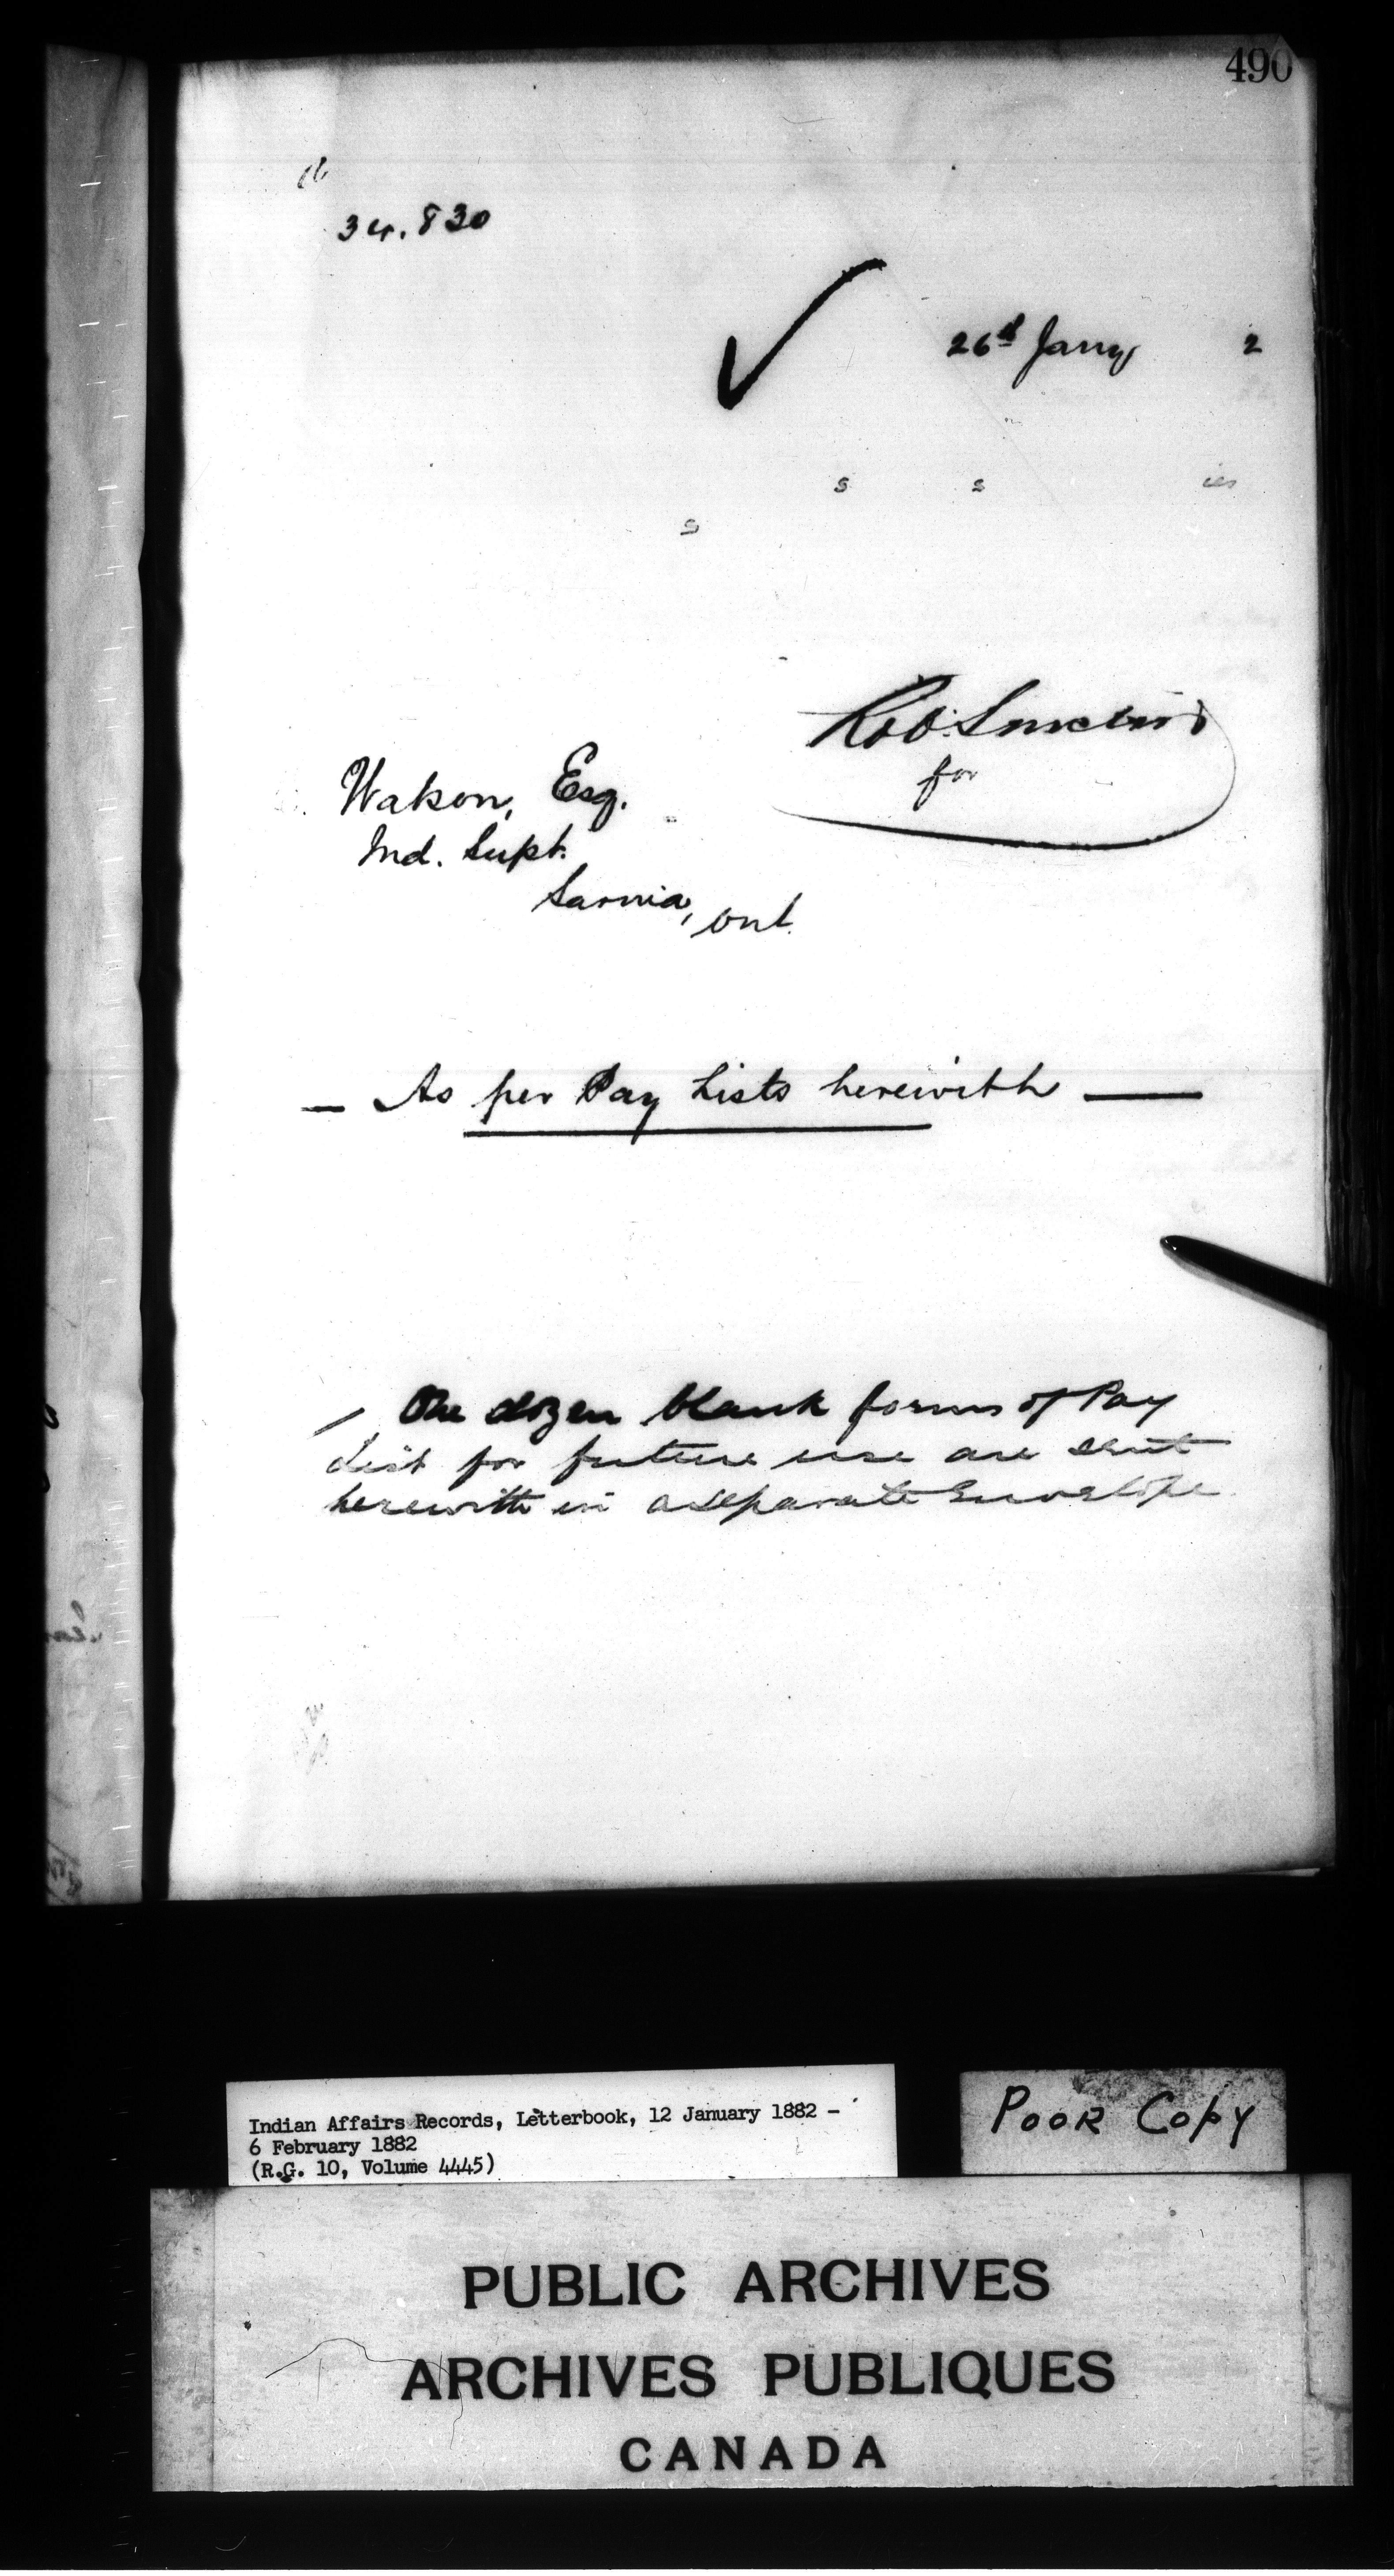 490
34.830
26th Jany 2
s s ies
s
Rob. Sinclair
for
Watson, Esq.
Ind. Supt.
Sarnia, Ont.
— As per Pay Lists herewith —
/ One dozen blank forms of Pay
List for future use are sent
herewith in a separate Envelope.
Indian Affairs Records, Letterbook, 12 January 1882 -
6 February 1882
(R.G. 10, Volume 4445)
POOR COPY
PUBLIC ARCHIVES
ARCHIVES PUBLIQUES
CANADA